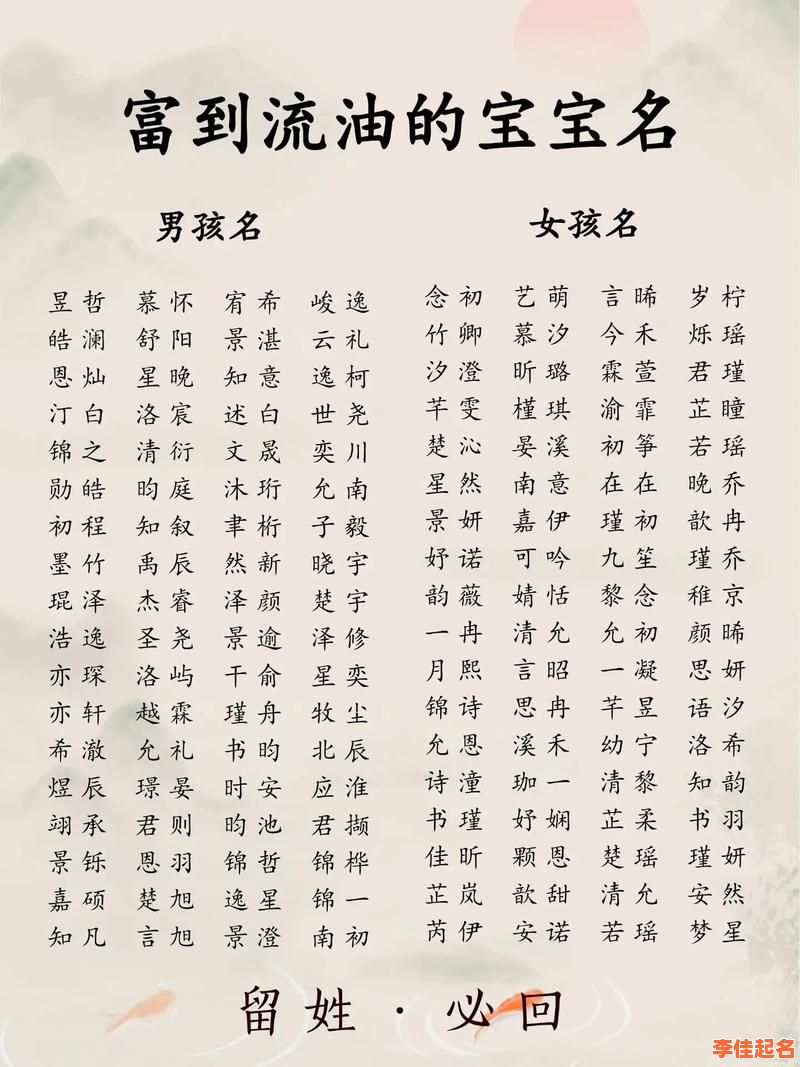 富到流油的宝宝名
男孩名
昱哲 慕怀 宥希 峻逸
皓澜 舒阳 景湛 云礼
恩灿 星晚 知意 逸柯
汀白 洛宸 述白 世尧
锦之 清衍 文晟 奕川
勋皓 昀庭 沐珩 允南
初程 知叙 聿桁 子毅
墨竹 禹辰 然新 晓宇
琨泽 杰睿 泽颜 楚宇
浩逸 圣尧 景逾 泽修
亦琛 洛屿 干俞 星奕
亦轩 越霖 瑾舟 牧尘
希澈 允礼 书昀 北辰
煜辰 璟晏 时安 应淮
翊承 君则 昀池 君撷
景铄 恩羽 锦哲 锦桦
嘉硕 楚旭 逸星 锦一
知凡 言旭 景澄 南初
女孩名
念初 艺萌 言晞 岁柠
竹卿 慕汐 今禾 烁瑶
汐澄 昕璐 霖萱 君瑾
芊雯 槿琪 渝霏 芷瞳
楚沁 晏溪 初筝 若瑶
星然 南意 在在 晚乔
景妍 嘉伊 瑾初 歆冉
妤诺 可吟 九笙 瑾乔
韵薇 婧恬 黎念 稚京
一冉 清允 允初 颜晞
月熙 言昭 一凝 思妍
锦诗 思冉 芊昱 语汐
允恩 溪禾 幼宁 洛希
诗潼 珈一 清黎 知韵
书瑾 妤娴 芷柔 书羽
佳昕 颗恩 楚瑶 瑾妍
芷岚 歆甜 清允 安然
芮伊 安诺 若瑶 梦星
留姓·必回
李佳起名